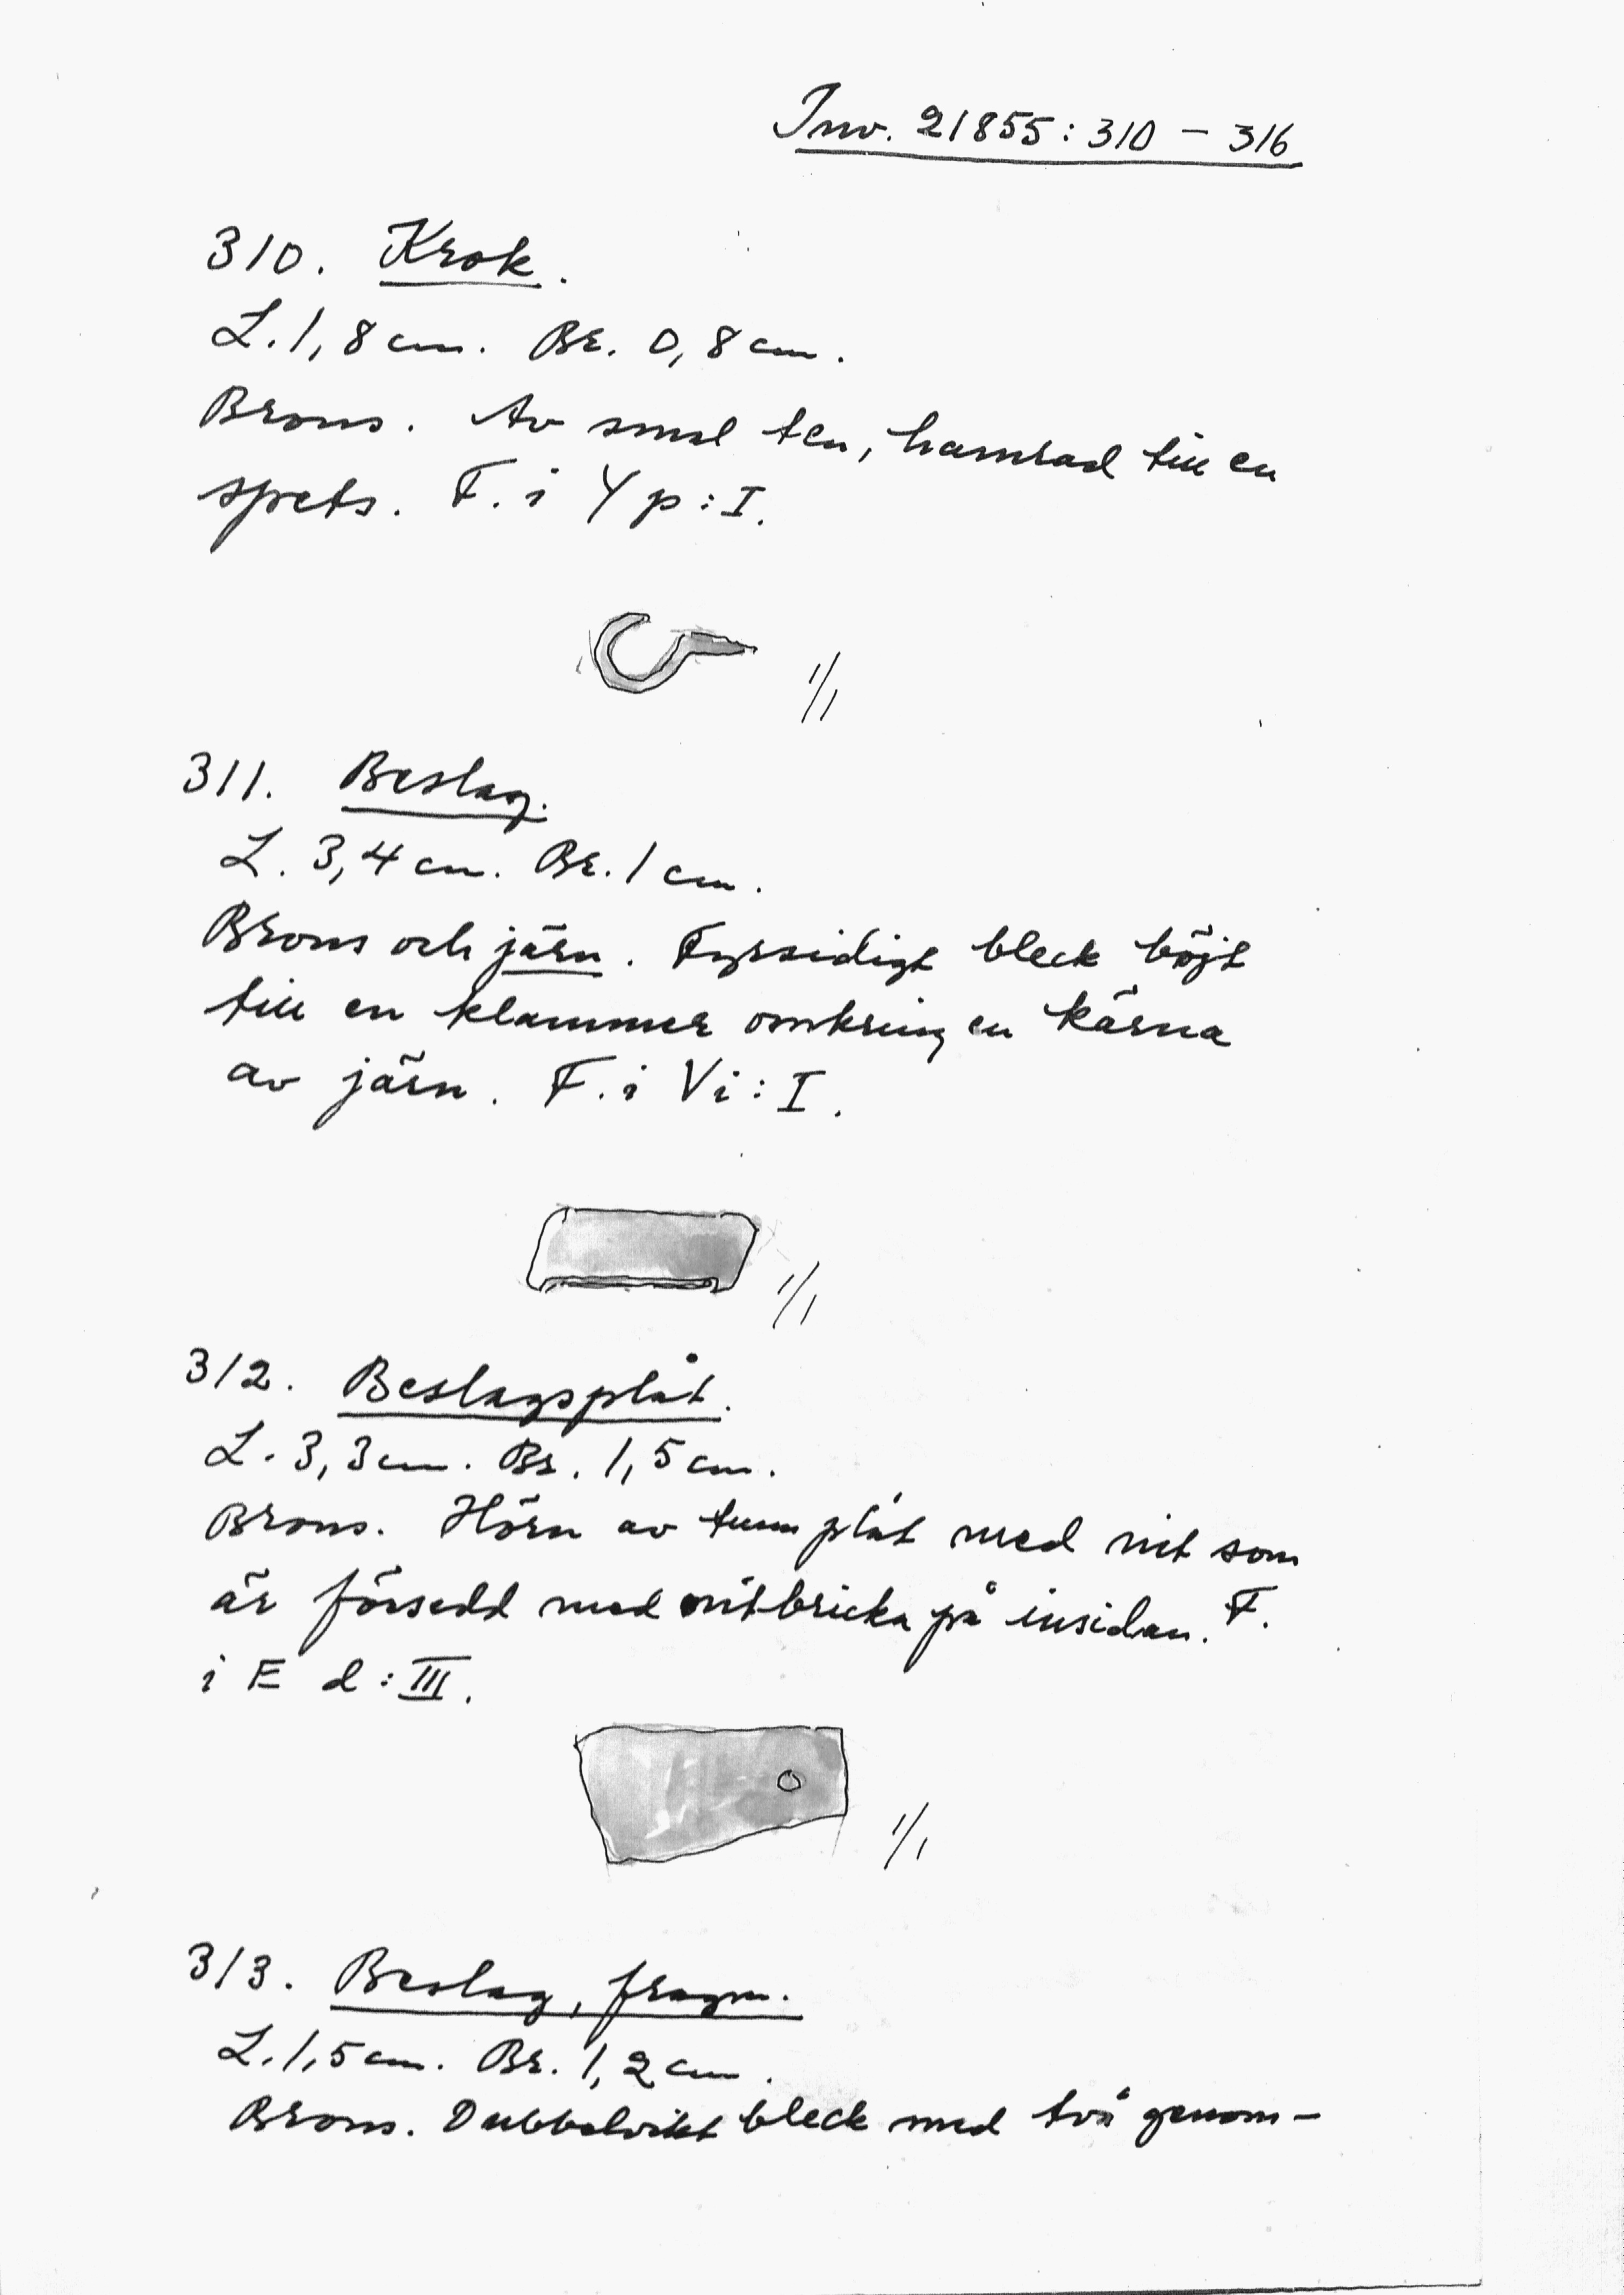 Inv. 21855:310 – 316
310. Krok.
L. 1,8 cm. Br. 0,8 cm.
Brons. Av smal ten, hamrad till en
spets. F. i Y p:I.
1/1
311. Beslag.
L. 3,4 cm. Br. 1 cm.
Brons och järn. Fyrsidigt bleck böjt
till en klammer omkring en kärna
av järn. F. i V i:I.
1/1
312. Beslagsplåt.
L. 3,3 cm. Br. 1,5 cm.
Brons. Hörn av tunn plåt med nit som
är försedd med nitbricka på insidan. F.
i E d:III.
1/1
313. Beslag, fragm.
L. 1,5 cm. Br. 1,2 cm.
Brons. Dubbelvikt bleck med två genom-